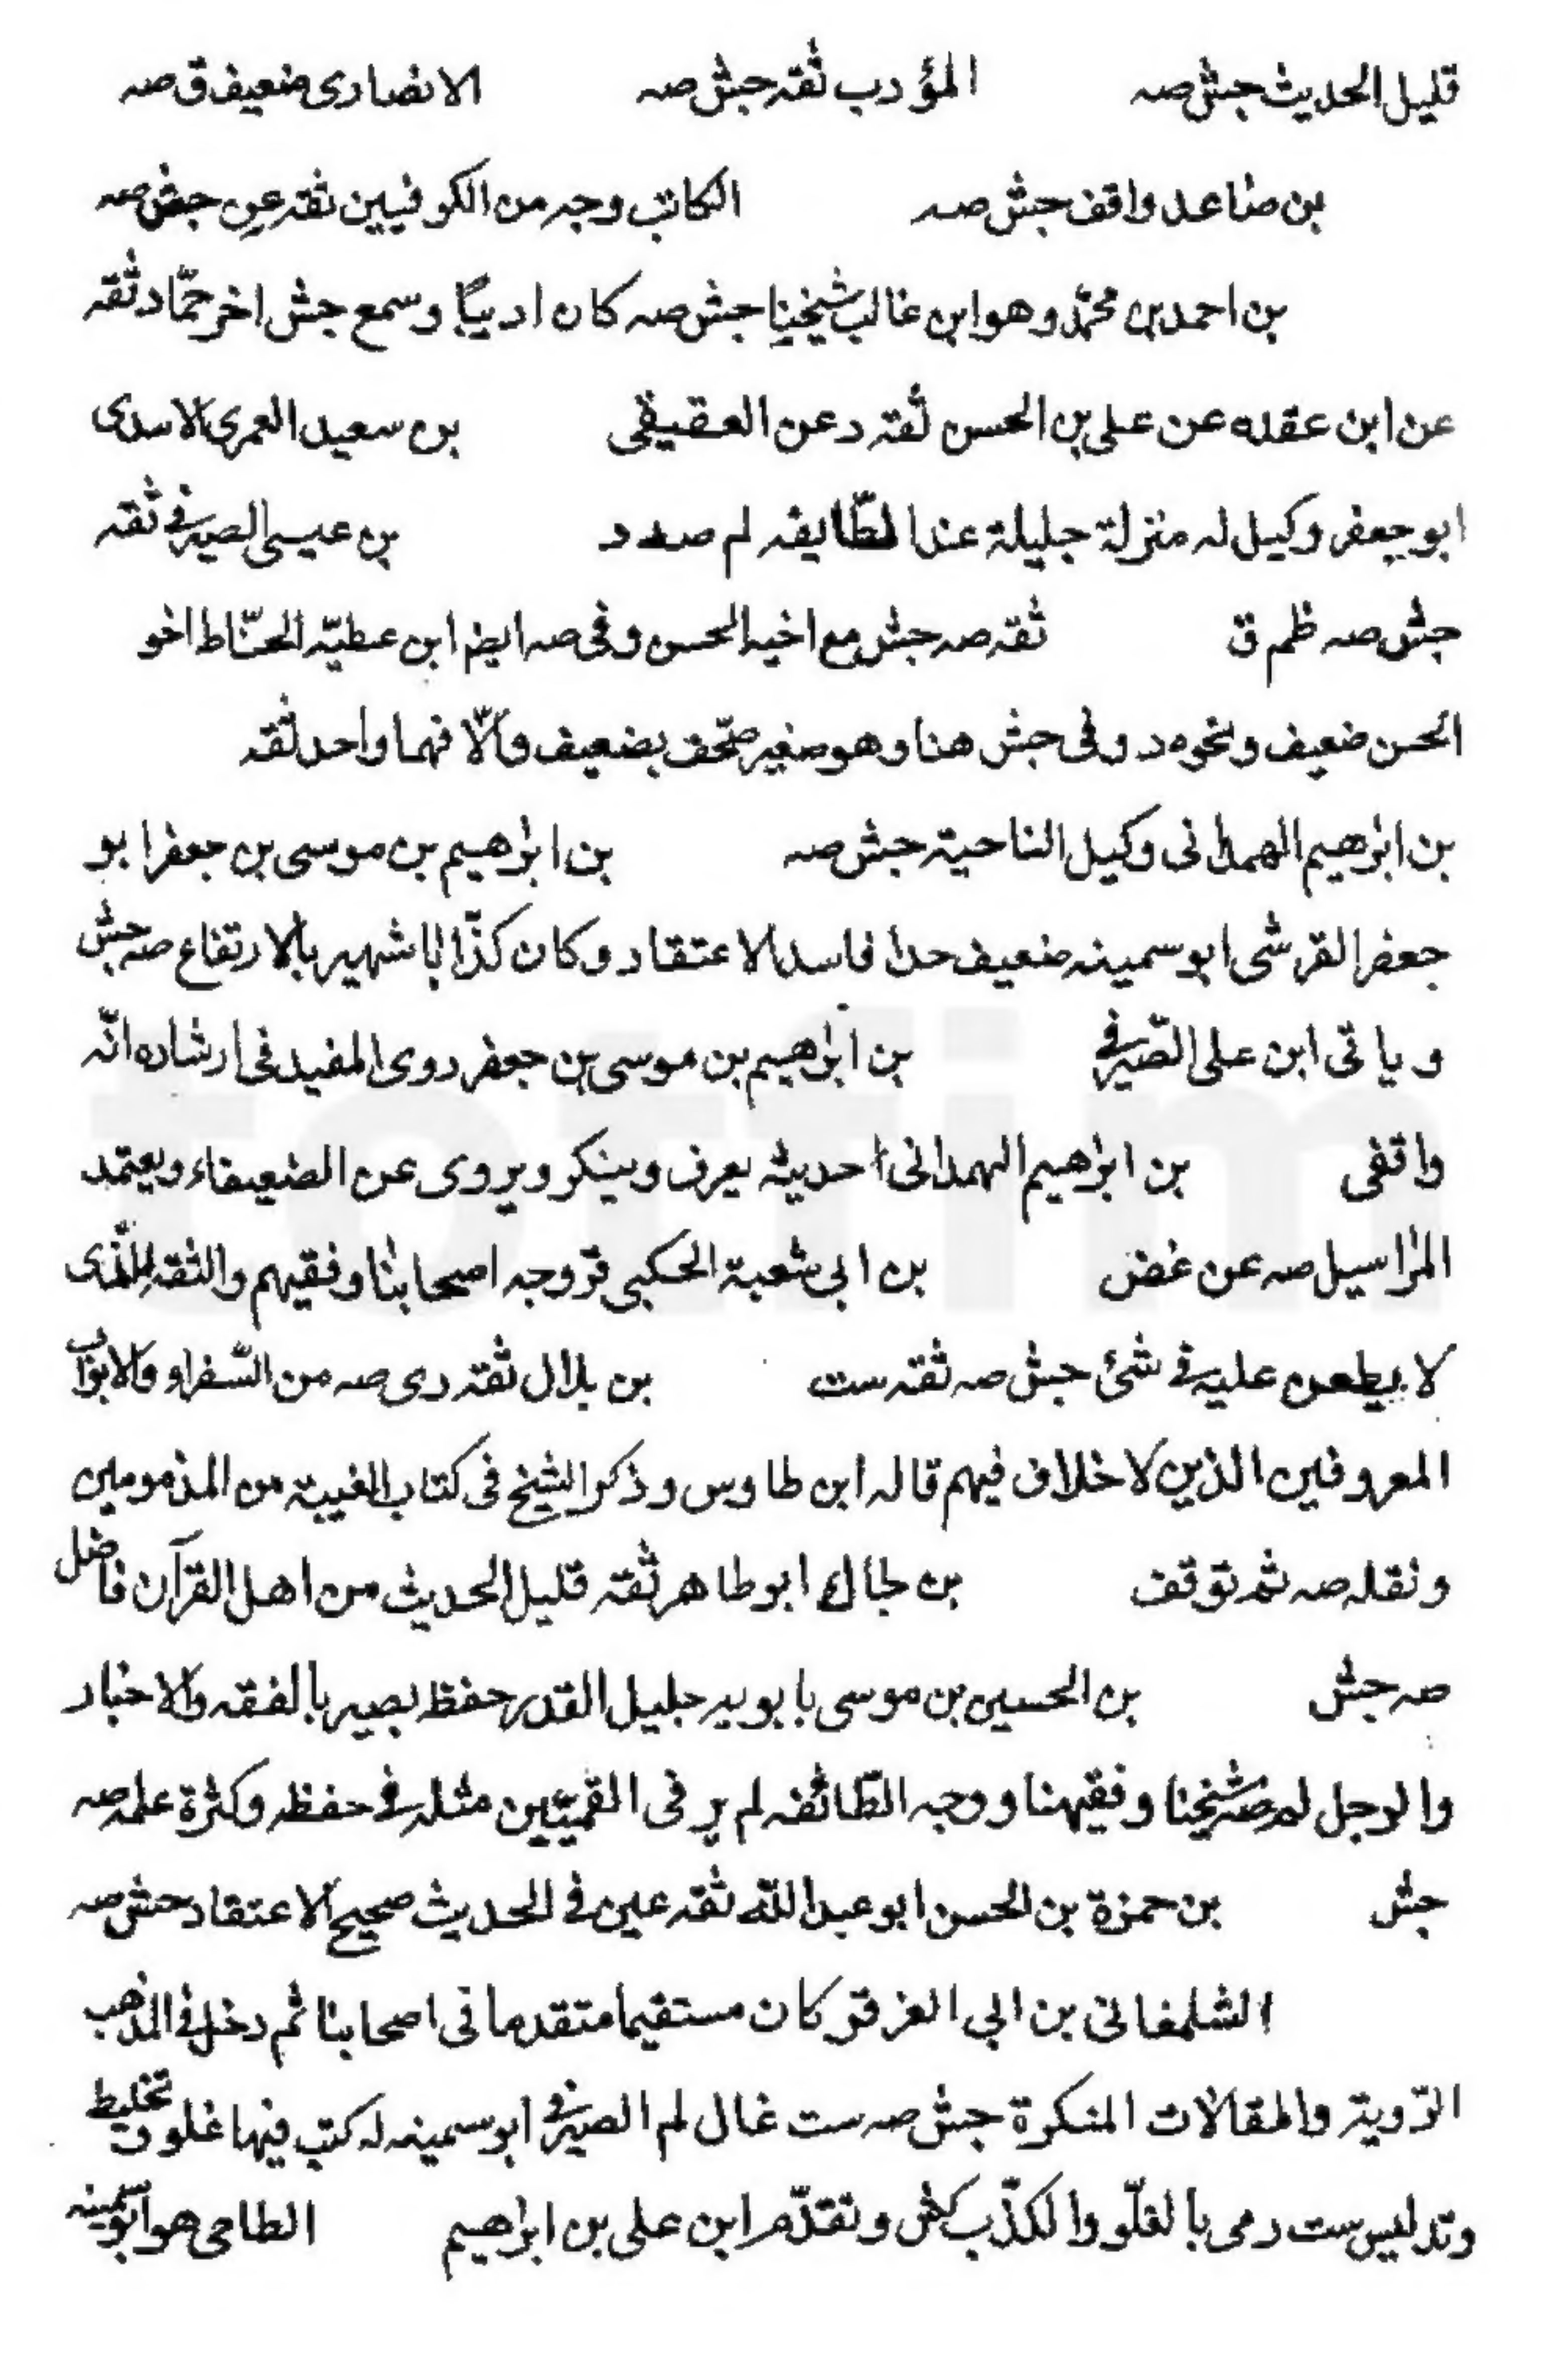 قليل الحديث جش صه المؤدب ثقه جش صه الانصارى ضعيف ق صه
بن صاعد واقف جش صه الكاتب وجه من الكوفيين ثقه عين جش صه
بن احمد بن محمّد وهو ابن غالب شيخنا جش صه كان اديبًا وسمع جش اخر حمّاد ثقه
عن ابن عقده عن على بن الحسن ثقه د عن العقيقى بن سعيد العمرى الاسدى
ابو جعفر وكيل له منزلة جليلة عند الطّايفه لم صه د بن عيسى الصيرفى ثقه
جش صه ظم ق ثقه صه جش مع اخيه الحسن وفى صه ايضا ابن عطيّه الحنّاط اخو
الحسن ضعيف ونحوه د وفى جش هنا وهو صغير صحّف بضعيف والّا فهما واحد ثقه
بن ابرٰهيم الهمدانى وكيل الناحية جش صه بن ابرٰهيم بن موسى بن جعفر ابو
جعفر القرشى ابو سمينه ضعيف جدا فاسد الاعتقاد وكان كذّابًا شهير بالارتفاع صه جش
وياتى ابن على الصّيرفى بن ابرٰهيم بن موسى بن جعفر روى المفيد فى ارشاده انّه
واقفى بن ابرٰهيم الهمدانى احديثه يعرف وينكر ويروى عن الضعيفاء ويعتمد
المرٰاسيل صه عن غض بن ابى شعبة الحلبى ق ر وجه اصحابنا وفقيهم والثقه الّذى
لا يطعن عليه فى شئ جش صه ثقه ست بن بلال ثقه رى صه من السّفراء والابوٰاب
المعروفين الذين لا خلاف فيهم قاله ابن طاوس وذكر الشيخ فى كتاب الغيبة من المذمومين
ونقله صه ثم توقف بن ابو طاهر ثقه قليل الحديث من اهل القرآن فاضل
صه جش بن الحسين بن موسى بابويه جليل القدر حفظ بصير بالفقه والاخبار
والرجل لم صه شيخنا وفقيهنا ووجه الطّائفه لم ير فى القميّيين مثله فى حفظه وكثرة علمه صه
جش بن حمزة بن الحسن ابو عبد اللّه ثقه عين فى الحديث صحيح الاعتقاد جش صه
الشلمغانى بن ابى العزقر كان مستقيما متقدما فى اصحابنا ثم دخل فى المذهب
الرّدية والمقالات المنكرة جش صه ست غال لم الصيرفى ابو سمينه له كتب فيها غلو وتخليط
وتدليس ست رمى بالغلّو والكذّب كش وتقدّم ابن على بن ابرٰهيم الطاحى هو ابو سمينه